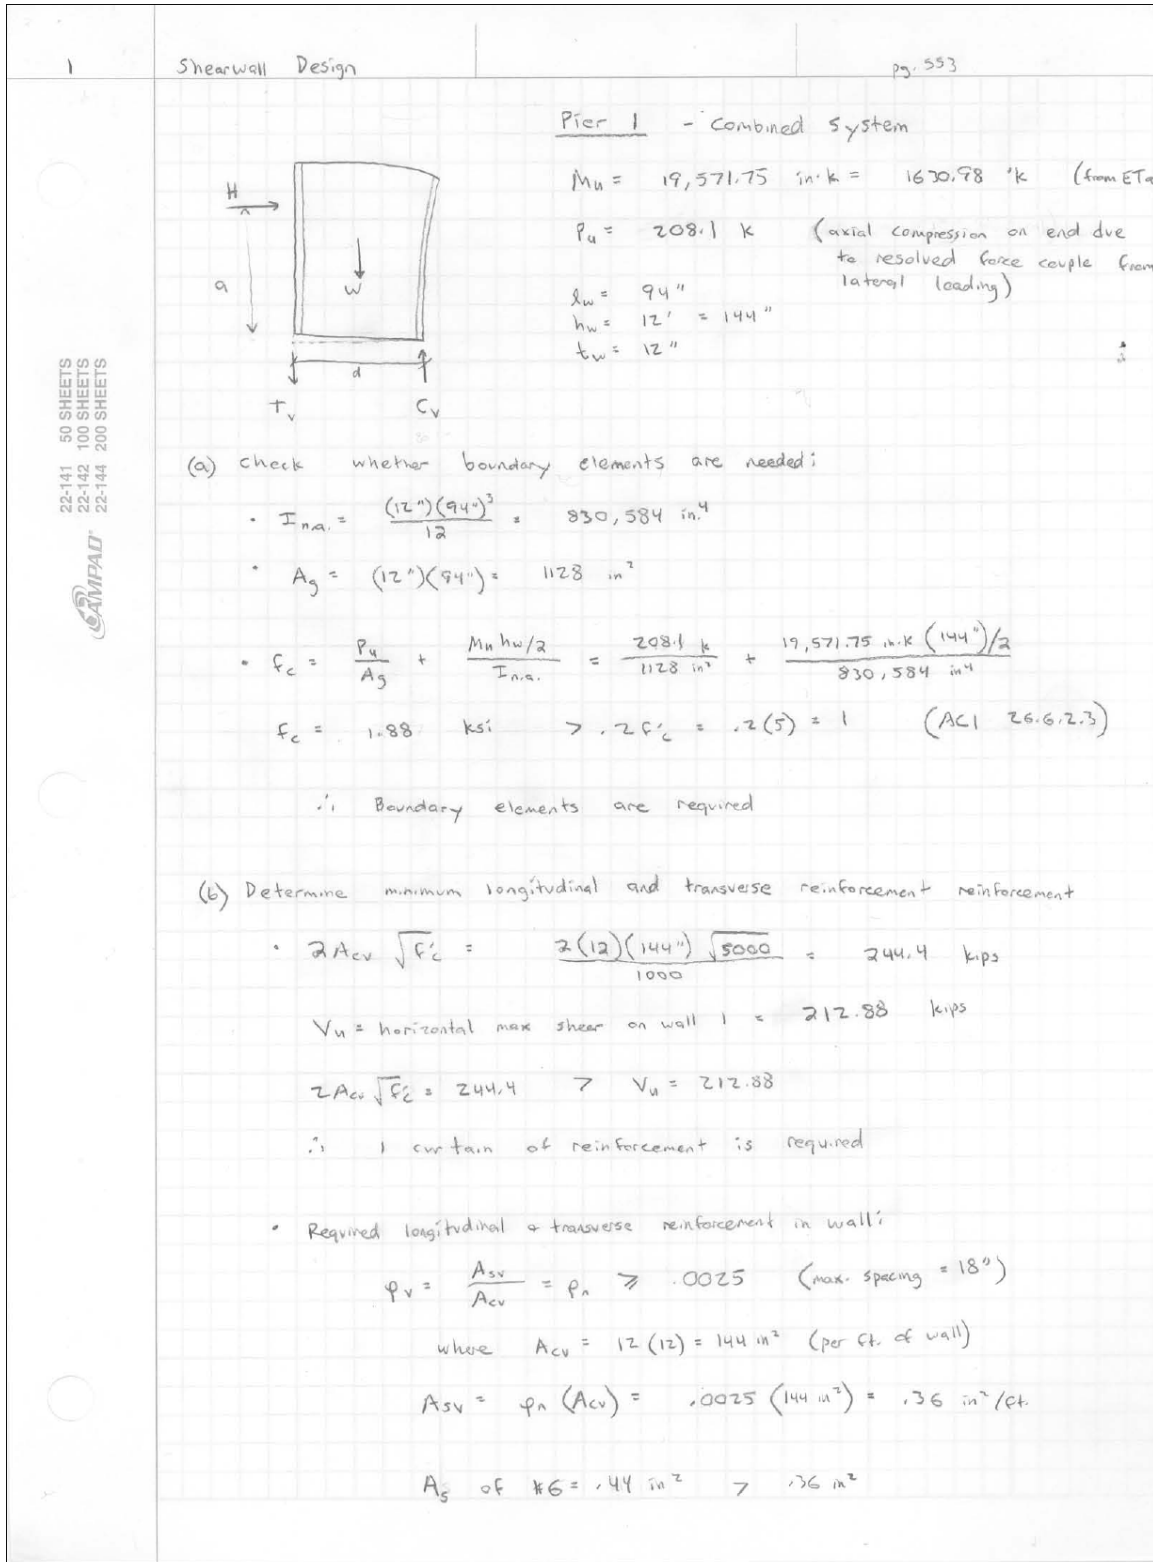 1 Shearwall Design pg. 553
Pier 1 - Combined System
Mu = 19,571.75 in·k = 1630.98 'k (from ETa
H
Pu = 208.1 k (axial compression on end due
to resolved force couple from
lateral loading)
a
W
lw = 94"
hw = 12' = 144"
tw = 12"
d
Tv Cv
22-141 50 SHEETS
22-142 100 SHEETS
22-144 200 SHEETS
AMPAD®
(a) Check whether boundary elements are needed:
· In.a. = (12")(94")³ / 12 = 830,584 in.⁴
· Ag = (12")(94") = 1128 in²
· fc = Pu / Ag + Mu hw/2 / In.a. = 208.1 k / 1128 in² + 19,571.75 in.k (144")/2 / 830,584 in⁴
fc = 1.88 ksi > .2f'c = .2(5) = 1 (ACI 26.6.2.3)
∴ Boundary elements are required
(b) Determine minimum longitudinal and transverse reinforcement reinforcement
· 2Acv √f'c = 2(12)(144")√5000 / 1000 = 244.4 kips
Vu = horizontal max shear on wall 1 = 212.88 kips
2Acv √f'c = 244.4 > Vu = 212.88
∴ 1 curtain of reinforcement is required
· Required longitudinal + transverse reinforcement in wall:
ρv = Asv / Acv = ρn ≥ .0025 (max. spacing = 18")
where Acv = 12(12) = 144 in² (per ft. of wall)
Asv = ρn (Acv) = .0025 (144 in²) = .36 in²/ft.
As of #6 = .44 in² > .36 in²